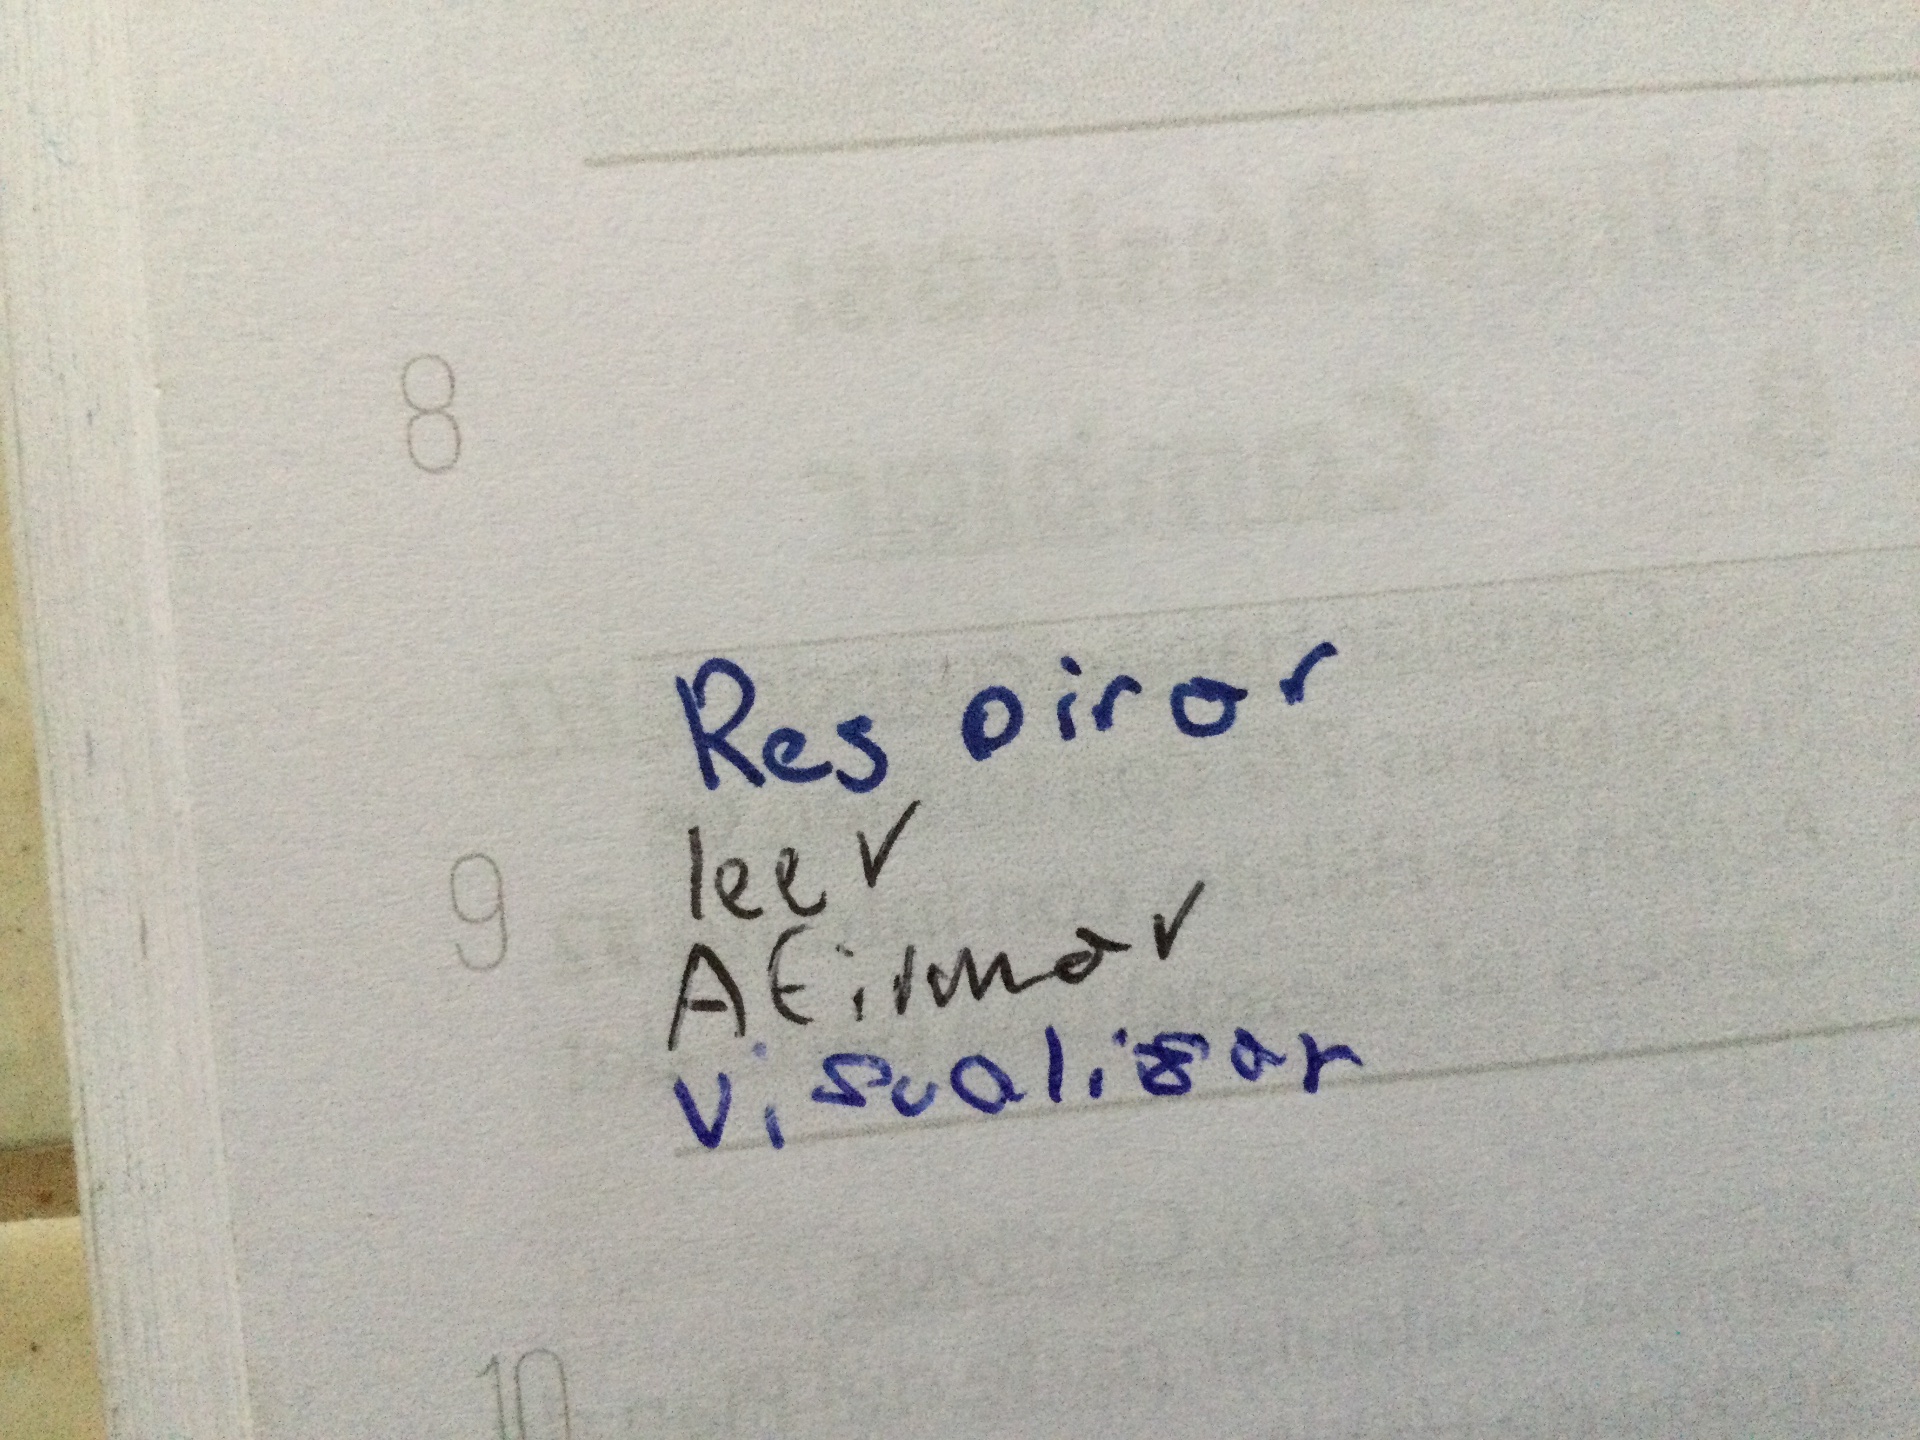 8
Respirar
9
leer
Afirmar
visualizar
10